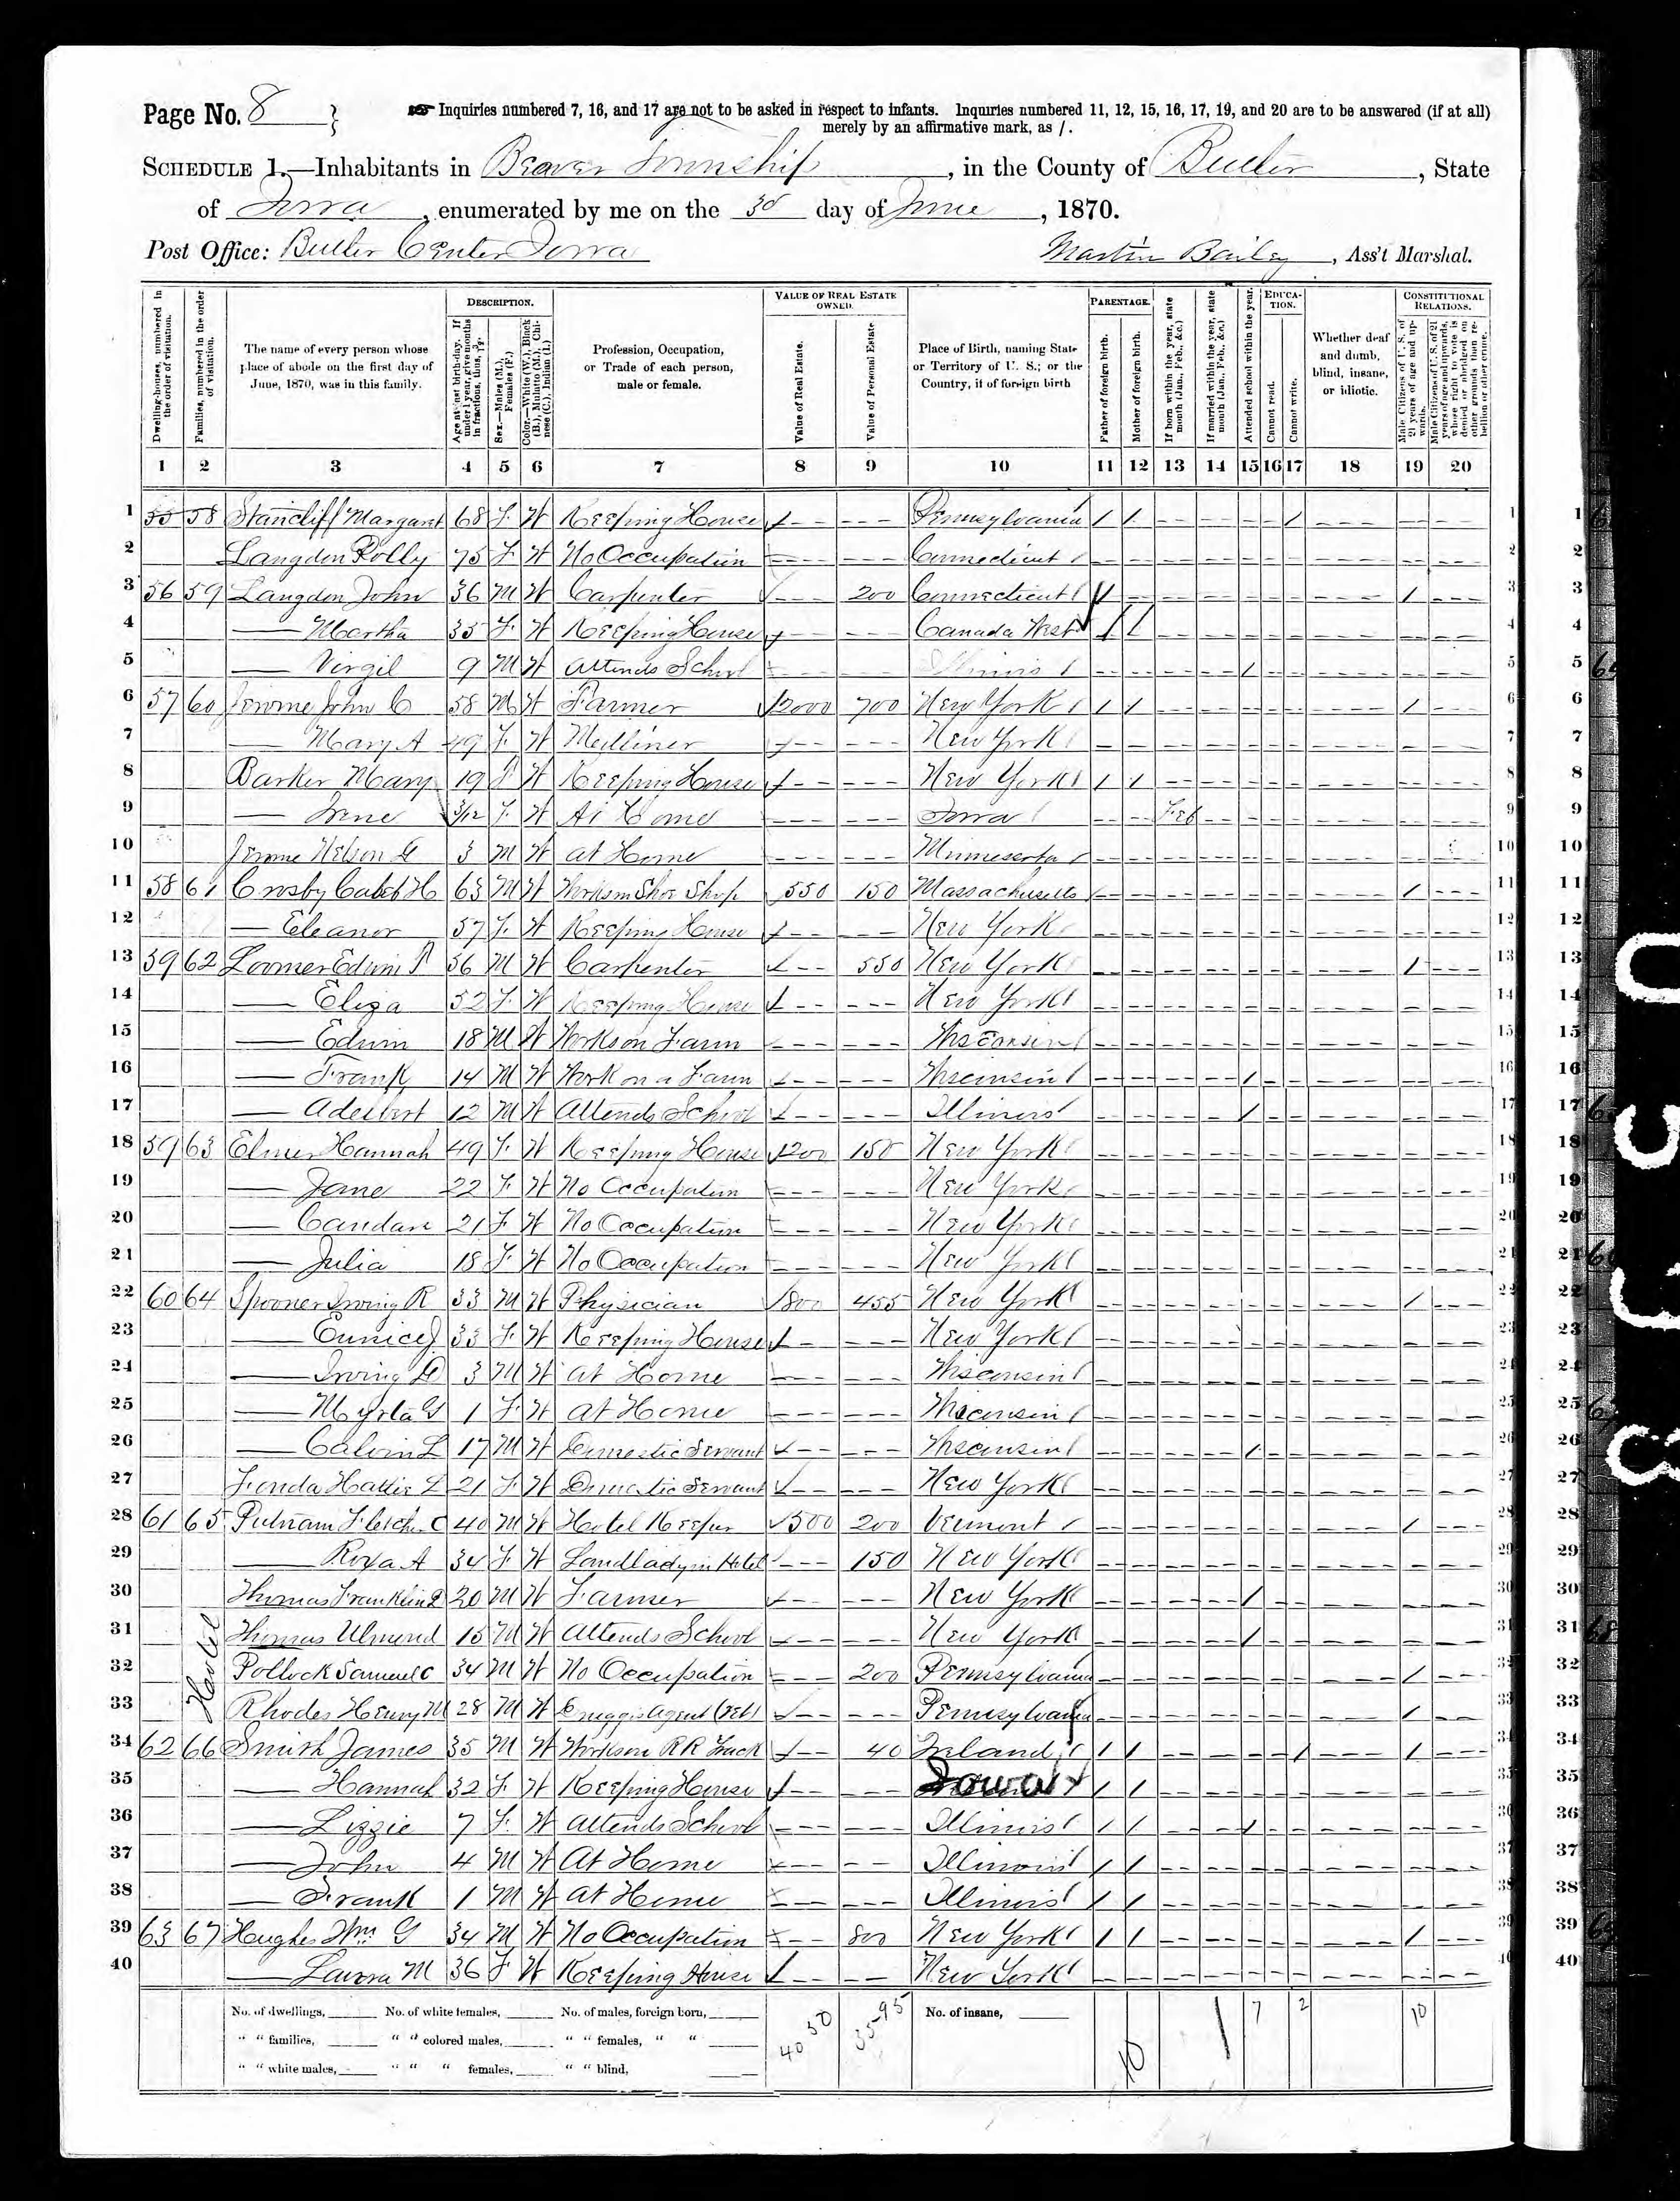 Page No. 8 }
☞ Inquiries numbered 7, 16, and 17 are not to be asked in respect to infants. Inquiries numbered 11, 12, 15, 16, 17, 19, and 20 are to be answered (if at all)
merely by an affirmative mark, as /.
SCHEDULE 1.—Inhabitants in Beaver Township, in the County of Butler, State
of Iowa, enumerated by me on the 30 day of June, 1870.
Post Office: Butler Center Iowa
Martin Bailey, Ass't Marshal.
Dwelling-houses, numbered in the order of visitation.
Families, numbered in the order of visitation.
The name of every person whose place of abode on the first day of June, 1870, was in this family.
DESCRIPTION.
Age at last birth-day. If under 1 year, give months in fractions, thus, 3/12.
Sex.—Males (M.), Females (F.)
Color.—White (W.), Black (B.), Mulatto (M.), Chinese (C.), Indian (I.)
Profession, Occupation, or Trade of each person, male or female.
VALUE OF REAL ESTATE OWNED.
Value of Real Estate.
Value of Personal Estate.
Place of Birth, naming State or Territory of U. S.; or the Country, if of foreign birth
PARENTAGE.
Father of foreign birth.
Mother of foreign birth.
If born within the year, state month (Jan., Feb., &c.)
If married within the year, state month (Jan., Feb., &c.)
Attended school within the year.
EDUCATION.
Cannot read.
Cannot write.
Whether deaf and dumb, blind, insane, or idiotic.
CONSTITUTIONAL RELATIONS.
Male Citizens of U. S. of 21 years of age and upwards.
Male Citizens of U. S. of 21 years of age and upwards, whose right to vote is denied or abridged on other grounds than rebellion or other crime.
1 2 3 4 5 6 7 8 9 10 11 12 13 14 15 16 17 18 19 20
1 55 58 Stancliff Margaret 68 F W Keeping House Pennsylvania / / / 1
2 Langdon Polly 75 F W No Occupation Connecticut 2
3 56 59 Langdon John 36 M W Carpenter 200 Connecticut / 3
4 — Martha 35 F W Keeping House Canada West / / 4
5 — Virgil 9 M W Attends School Illinois / 5
6 57 60 Jerome John C 58 M W Farmer 2000 700 New York / / / 6
7 — Mary A 49 F W Milliner New York 7
8 Barker Mary 19 F W Keeping House New York / / 8
9 — Irene 3/12 F W At Home Iowa Feb 9
10 Jerome Nelson 3 M W at Home Minnesota 10
11 58 61 Crosby Caleb H 63 M W Works in Shoe Shop 550 150 Massachusetts / 11
12 — Eleanor 57 F W Keeping House New York 12
13 59 62 Loomer Edwin 56 M W Carpenter 550 New York / 13
14 — Eliza 52 F W Keeping House New York 14
15 — Edwin 18 M W Works on Farm Wisconsin 15
16 — Frank 14 M W Work on a Farm Wisconsin / 16
17 — Adelbert 12 M W Attends School Illinois / 17
18 59 63 Elmer Hannah 49 F W Keeping House 200 150 New York 18
19 — Jane 22 F W No Occupation New York 19
20 — 21 F W No Occupation New York 20
21 — Julia 18 F W No Occupation New York 21
22 60 64 Spooner Irving R 33 M W Physician 800 455 New York / 22
23 — Eunice J 33 F W Keeping House New York 23
24 — Irving 3 M W at Home Wisconsin 24
25 — Myrta G 1 F W at Home Wisconsin 25
26 — Calvin L 17 M W Domestic Servant Wisconsin / 26
27 Fonda Hattie L 21 F W Domestic Servant New York 27
28 61 65 Putnam Fletcher C 40 M W Hotel Keeper 500 200 Vermont / 28
29 — Roxa A 34 F W Landlady in Hotel 150 New York 29
30 Thomas Franklin 20 M W Farmer New York / 30
31 Thomas Almond 15 M W Attends School New York / 31
Hotel
32 Pollock Samuel C 34 M W No Occupation 200 Pennsylvania / 32
33 Rhodes Henry M 28 M W Agent Pennsylvania / 33
34 62 66 Smith James 35 M W Works on RR Track 40 Ireland / / / / 34
35 — Hannah 32 F W Keeping House Iowa / / 35
36 — Lizzie 7 F W Attends School Illinois / / / 36
37 — John 4 M W At Home Illinois / / 37
38 — Frank 1 M W at Home Illinois / / 38
39 63 67 Hughes Wm G 34 M W No Occupation 800 New York / / / 39
40 — Laura M 36 F W Keeping House New York 40
No. of dwellings, No. of white females, No. of males, foreign born, 4050 3595 No. of insane, 10 1 7 2 10
" " families, " " colored males, " " females, " "
" " white males, " " " females, " " blind,